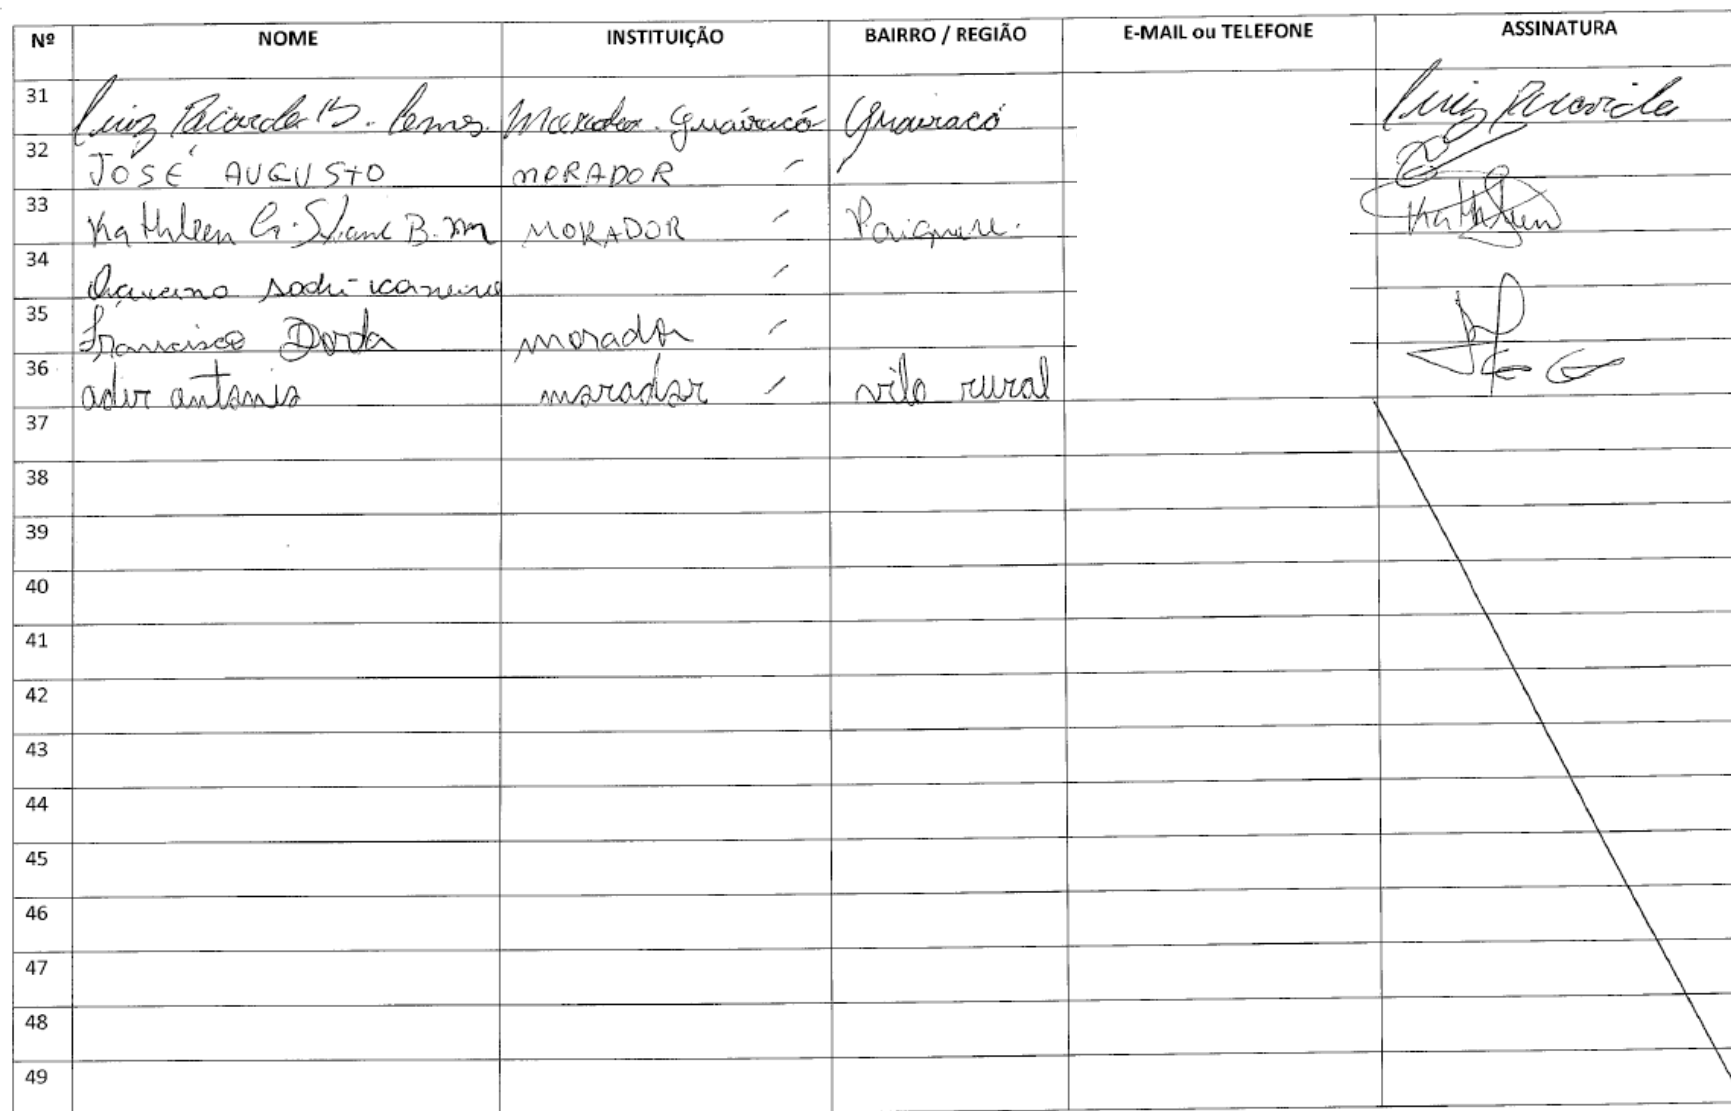 Nº NOME INSTITUIÇÃO BAIRRO / REGIÃO E-MAIL ou TELEFONE ASSINATURA
31 Luiz Ricardo B. Lemos. Morador. Guairacá Guairacá Luiz Ricardo
32 JOSÉ AUGUSTO MORADOR
33 Kathleen G. B. m MORADOR Paiquere. Kathleen
34
35 Francisco Dorta morador
36 adir antonio morador vila rural
37
38
39
40
41
42
43
44
45
46
47
48
49